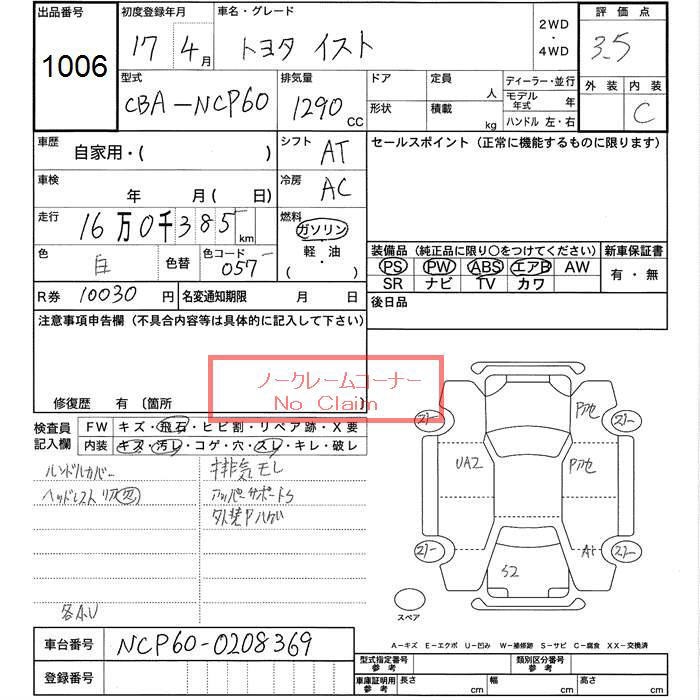 出品番号 初度登録年月 車名・グレード 評価点
1006 17 4月 トヨタ イスト 2WD・4WD 3.5
外装 内装
C
型式 排気量 ドア 定員 人 ディーラー・並行
CBA-NCP60 1290 CC 形状 積載 kg モデル年式 年
ハンドル 左・右
車歴 自家用・( ) シフト AT セールスポイント (正常に機能するものに限ります)
車検 年 月(日) 冷房 AC
走行 16万0千385km 燃料 ガソリン
軽・油
( ・ )
色 白 色替 色コード 057
装備品 (純正品に限り○をつけてください) 新車保証書
PS PW ABS エアB AW 有・無
SR ナビ TV カワ
R券 10030円 名変通知期限 月 日 後日品
注意事項申告欄 (不具合内容等は具体的に記入して下さい)
ノークレームコーナー
No Claim
修復歴 有 〔箇所
検査員記入欄 FW キズ・飛石・ヒビ割・リペア跡・X要
内装 キズ・汚レ・コゲ・穴・スレ・キレ・破レ
ハンドルカバー 排気モレ
ヘッドレスト アッパーサポートS
外装Pハゲ
各A.U
Pアセ
UA2 Pアセ
A1
S2
スペア
A-キズ E-エクボ U-凹み W-補修跡 S-サビ C-腐食 XX-交換済
車台番号 NCP60-0208369
登録番号
型式指定番号 参考 類別区分番号 参考
車庫証明用 参考 長さ cm 幅 cm 高さ cm